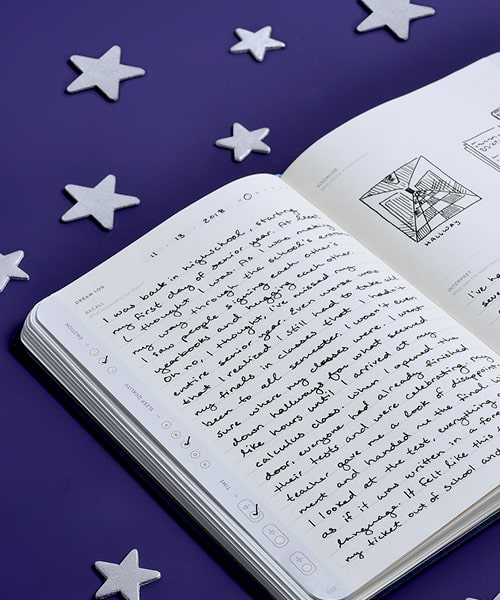 11 . 13 . 2018
DREAM LOG
RECALL
I was back in highschool, starting
my first day of senior year. At least
I thought I was. As I was making
my way through the school's entrance
I saw people signing each other's
yearbooks and hugging each other.
Oh no, I thought, I've missed my
entire senior year. Even worse was
that I realized I still had to take
my finals in classes that I hadn't
been to all semester. I wasn't even
sure where my classes were. I went
down hallways for what seemed
like hours until I arrived at my
calculus class. When I opened the
door, everyone had already finished
their tests and were celebrating. My
teacher gave me a look of disappoint
ment and handed me the final.
I looked at the test, everything
as if it was written in a for
language. It felt like this
my ticket out of school and
EMOTION
SLEEP QUALITY
TIME
VISUALIZE
HALLWAY
INTERPRET
I've